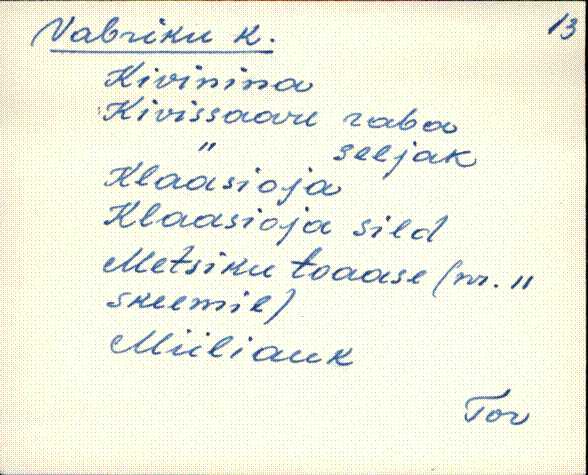 13
Vabriku k.
Kivinina
Kivissaare raba
" seljak
Klaasioja
Klaasioja sild
Metsiku toaase (nr. "
skeemil)
Miiliauk
Tor